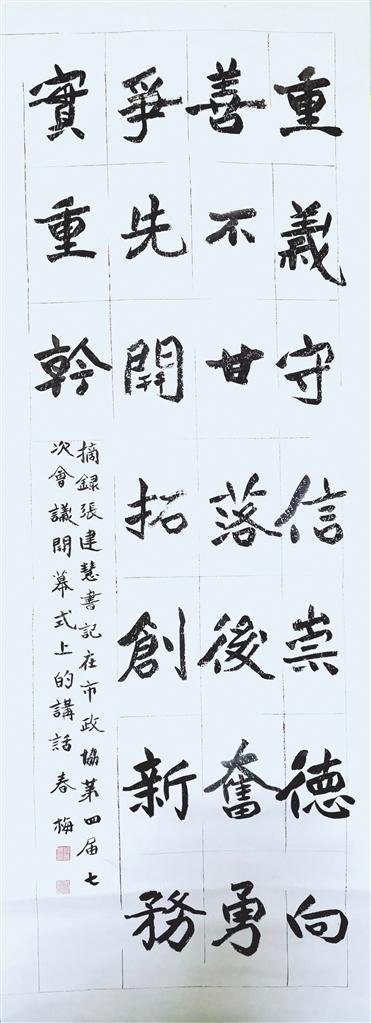 重義守信崇德向
善不甘落後奮勇
爭先開拓創新務
實重幹
摘錄張建慧書記在市政協第四届七
次會議開幕式上的講話 春梅